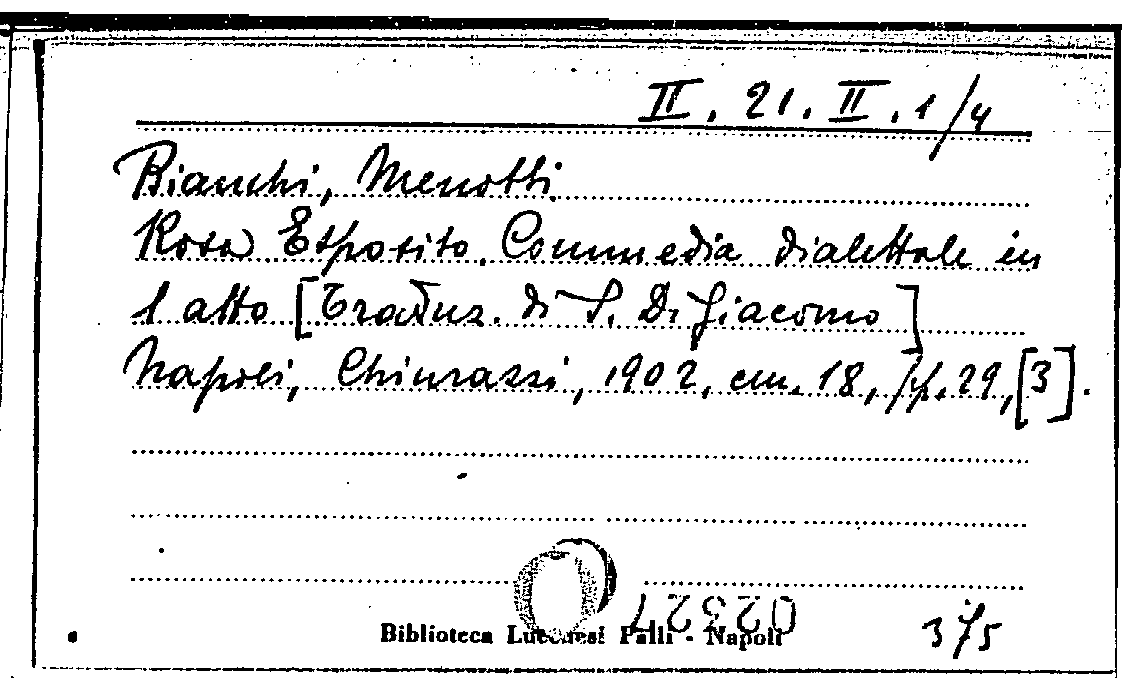 II. 21. II. 1/4
Bianchi, Menotti
Rosa Esposito. Commedia dialettale in
1 atto [Traduz. di S. Di Giacomo]
Napoli, Chiurazzi, 1902, cm. 18, pp. 29, [3].
023271
Biblioteca Lucchesi Palli - Napoli
375